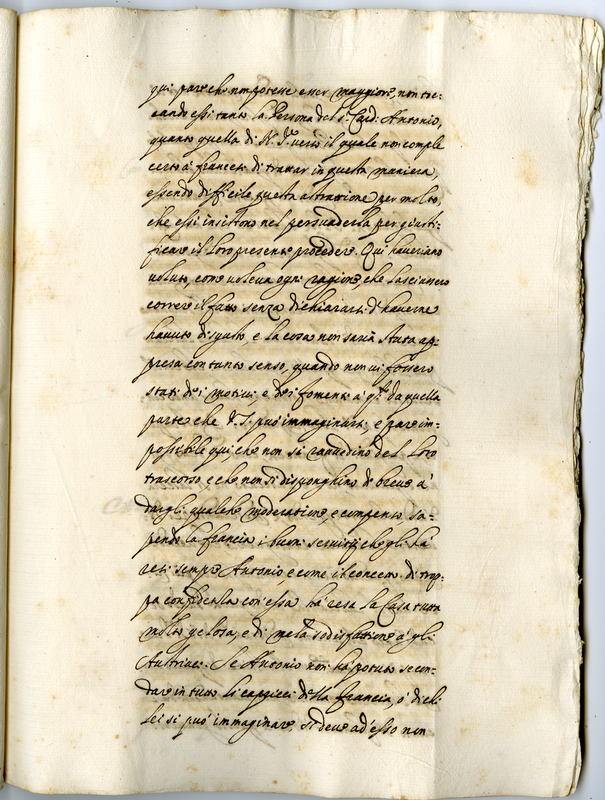 qui pare che non potesse esser maggiore, non toc:
cando essi tanto la Persona del S. Card: Antonio,
quanto quella di N. Sre verso il quale non comple
certo à francesi di trattar in questa maniera,
essendo difficile questa attrazione per molto,
che essi insistono nel persuaderla per giusti:
ficare il loro presente procedere. Qui haveriano
voluto, come voleva ogni ragione, che lasciassero
correre il fatto senza dichiararsi d'haverne
havuto disgusto, e la cosa non saria stata ap:
presa con tanto senso, quando non vi fossero
stati dei motivi, e dei fomenti à qta da quella
parte che V. S. può immaginarsi, e pare im:
possibile qui che non si ravvedino del loro
trascorso e che non si disponghino di breve à
dargli qualche moderatione, e compenso, sa:
pendo la francia i buoni servitij che gli hà
resi sempre Antonio, e come il concetto di trop:
pa confidenza con essa hà resa la Casa tutta
molto gelosa, e di mela sodisfattione à gli
Austriaci. Se Antonio non hà potuto secon:
dare in tutto li capricci della francia, ò di ch.
lei si può immaginare, si deve adesso non